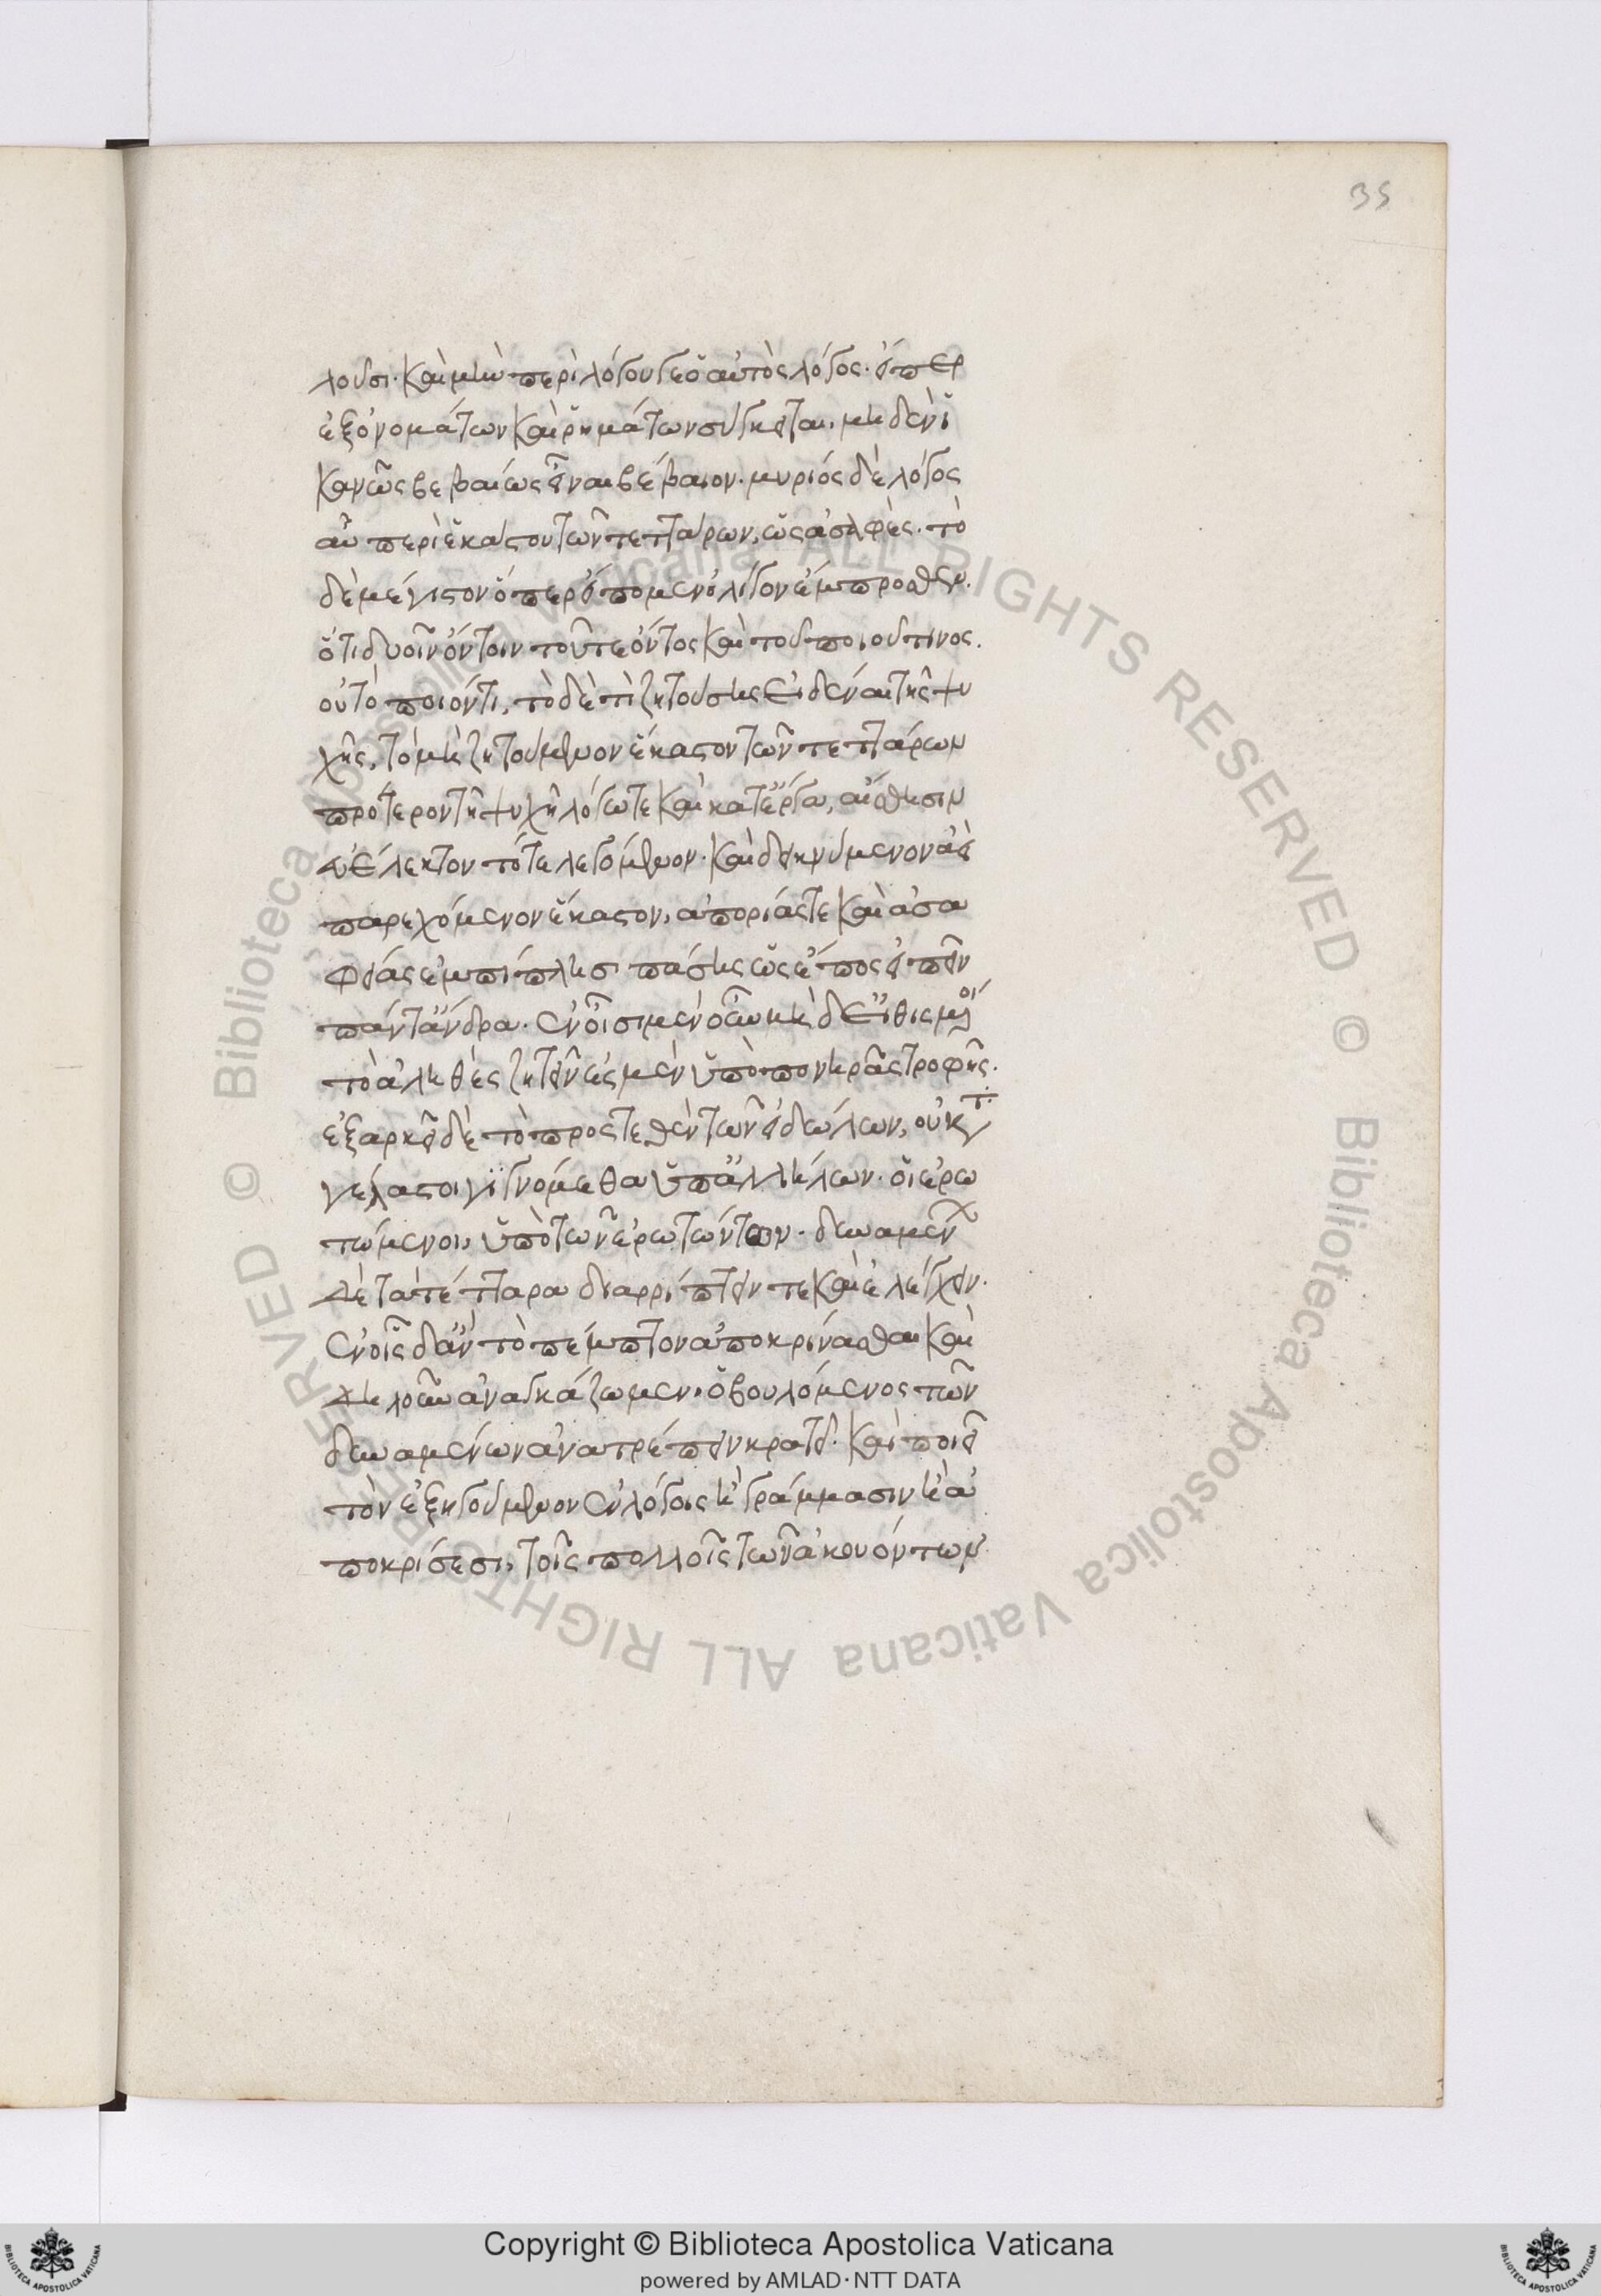 35
λοῦσι. καὶ μὴν περὶ λόγου γε ὁ αὐτὸς λόγος. εἴπερ
ἐξ ὀνομάτων καὶ ῥημάτων σύγκειται, μηδὲν ἱ
κανῶς βεβαίως εἶναι βέβαιον. μυρίος δὲ λόγος
αὖ περὶ ἑκάστου τῶν τεττάρων, ὡς ἀσαφές. τὸ
δὲ μέγιστον ὅπερ εἴπομεν ὀλίγον ἔμπροσθεν.
ὅτι δυοῖν ὄντοιν τοῦ τε ὄντος καὶ τοῦ ποιοῦ τινος.
οὐ τὸ ποιόν τι, τὸ δὲ τὶ ζητούσης εἰδέναι τῆς ψυ
χῆς, τὸ μὴ ζητούμενον ἕκαστον τῶν τεττάρων
προτεῖνον τῇ ψυχῇ λόγω τε καὶ κατ' ἔργα, αἴσθησιν
εὐέλεκτον τό τε λεγόμενον. καὶ δεικνύμενον ἀεὶ
παρεχόμενον ἕκαστον, ἀπορίας τε καὶ ἀσα
φείας ἐμπίπλησι πάσης ὡς ἔπος εἰπεῖν
πάντ' ἄνδρα. ἐν οἷσι μὲν οὖν μηδ' εἰθισμένοι
τὸ ἀληθὲς ζητεῖν ἐσμὲν ὑπὸ πονηρᾶς τροφῆς.
ἐξαρκεῖ δὲ τὸ προστεθὲν τῶν εἰδώλων, οὐ κατα
γέλαστοι γιγνόμεθα ὑπ' ἀλλήλων. οἱ ἐρω
τώμενοι, ὑπὸ τῶν ἐρωτώντων. δυναμένων
δὲ τὰ τέτταρα διαρρίπτειν τε καὶ ἐλέγχειν.
ἐν οἷς δ' ἂν τὸ πέμπτον ἀποκρίνασθαι καὶ
δηλοῦν ἀναγκάζωμεν, ὁ βουλόμενος τῶν
δυναμένων ἀνατρέπειν κρατεῖ. καὶ ποιεῖ
τὸν ἐξηγούμενον ἐν λόγοις ἢ γράμμασιν ἢ ἀ
ποκρίσεσι, τοῖς πολλοῖς τῶν ἀκουόντων
© Biblioteca Apostolica Vaticana ALL RIGHTS RESERVED © Biblioteca Apostolica Vaticana ALL RIGHTS RESERVED
Copyright © Biblioteca Apostolica Vaticana
powered by AMLAD·NTT DATA
BIBLIOTECA APOSTOLICA VATICANA
BIBLIOTECA APOSTOLICA VATICANA